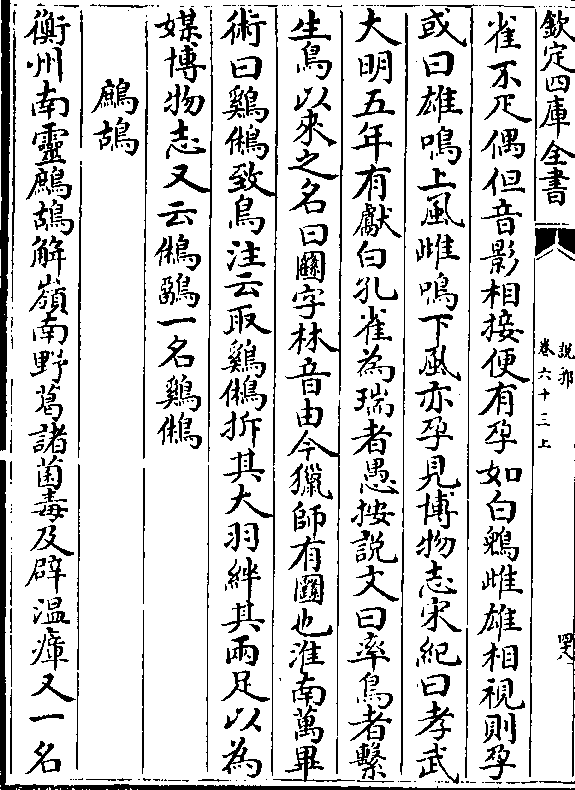 欽定四庫全書
說郛
卷六十三上
雀不疋偶但音影相接便有孕如白鵁雌雄相視則孕
或曰雄鳴上風雌鳴下風亦孕見博物志宋紀曰孝武
大明五年有獻白孔雀為瑞者愚按說文曰率鳥者繫
生鳥以來之名曰圝字林音由今獵師有圝也淮南萬畢
術曰鷄鵂致鳥注云取鷄鵂拆其大羽絆其兩足以為
媒博物志又云鵂鶹一名鷄鵂
鷓鴣
衡州南靈鷓鴣解嶺南野葛諸菌毒及辟温瘴又一名